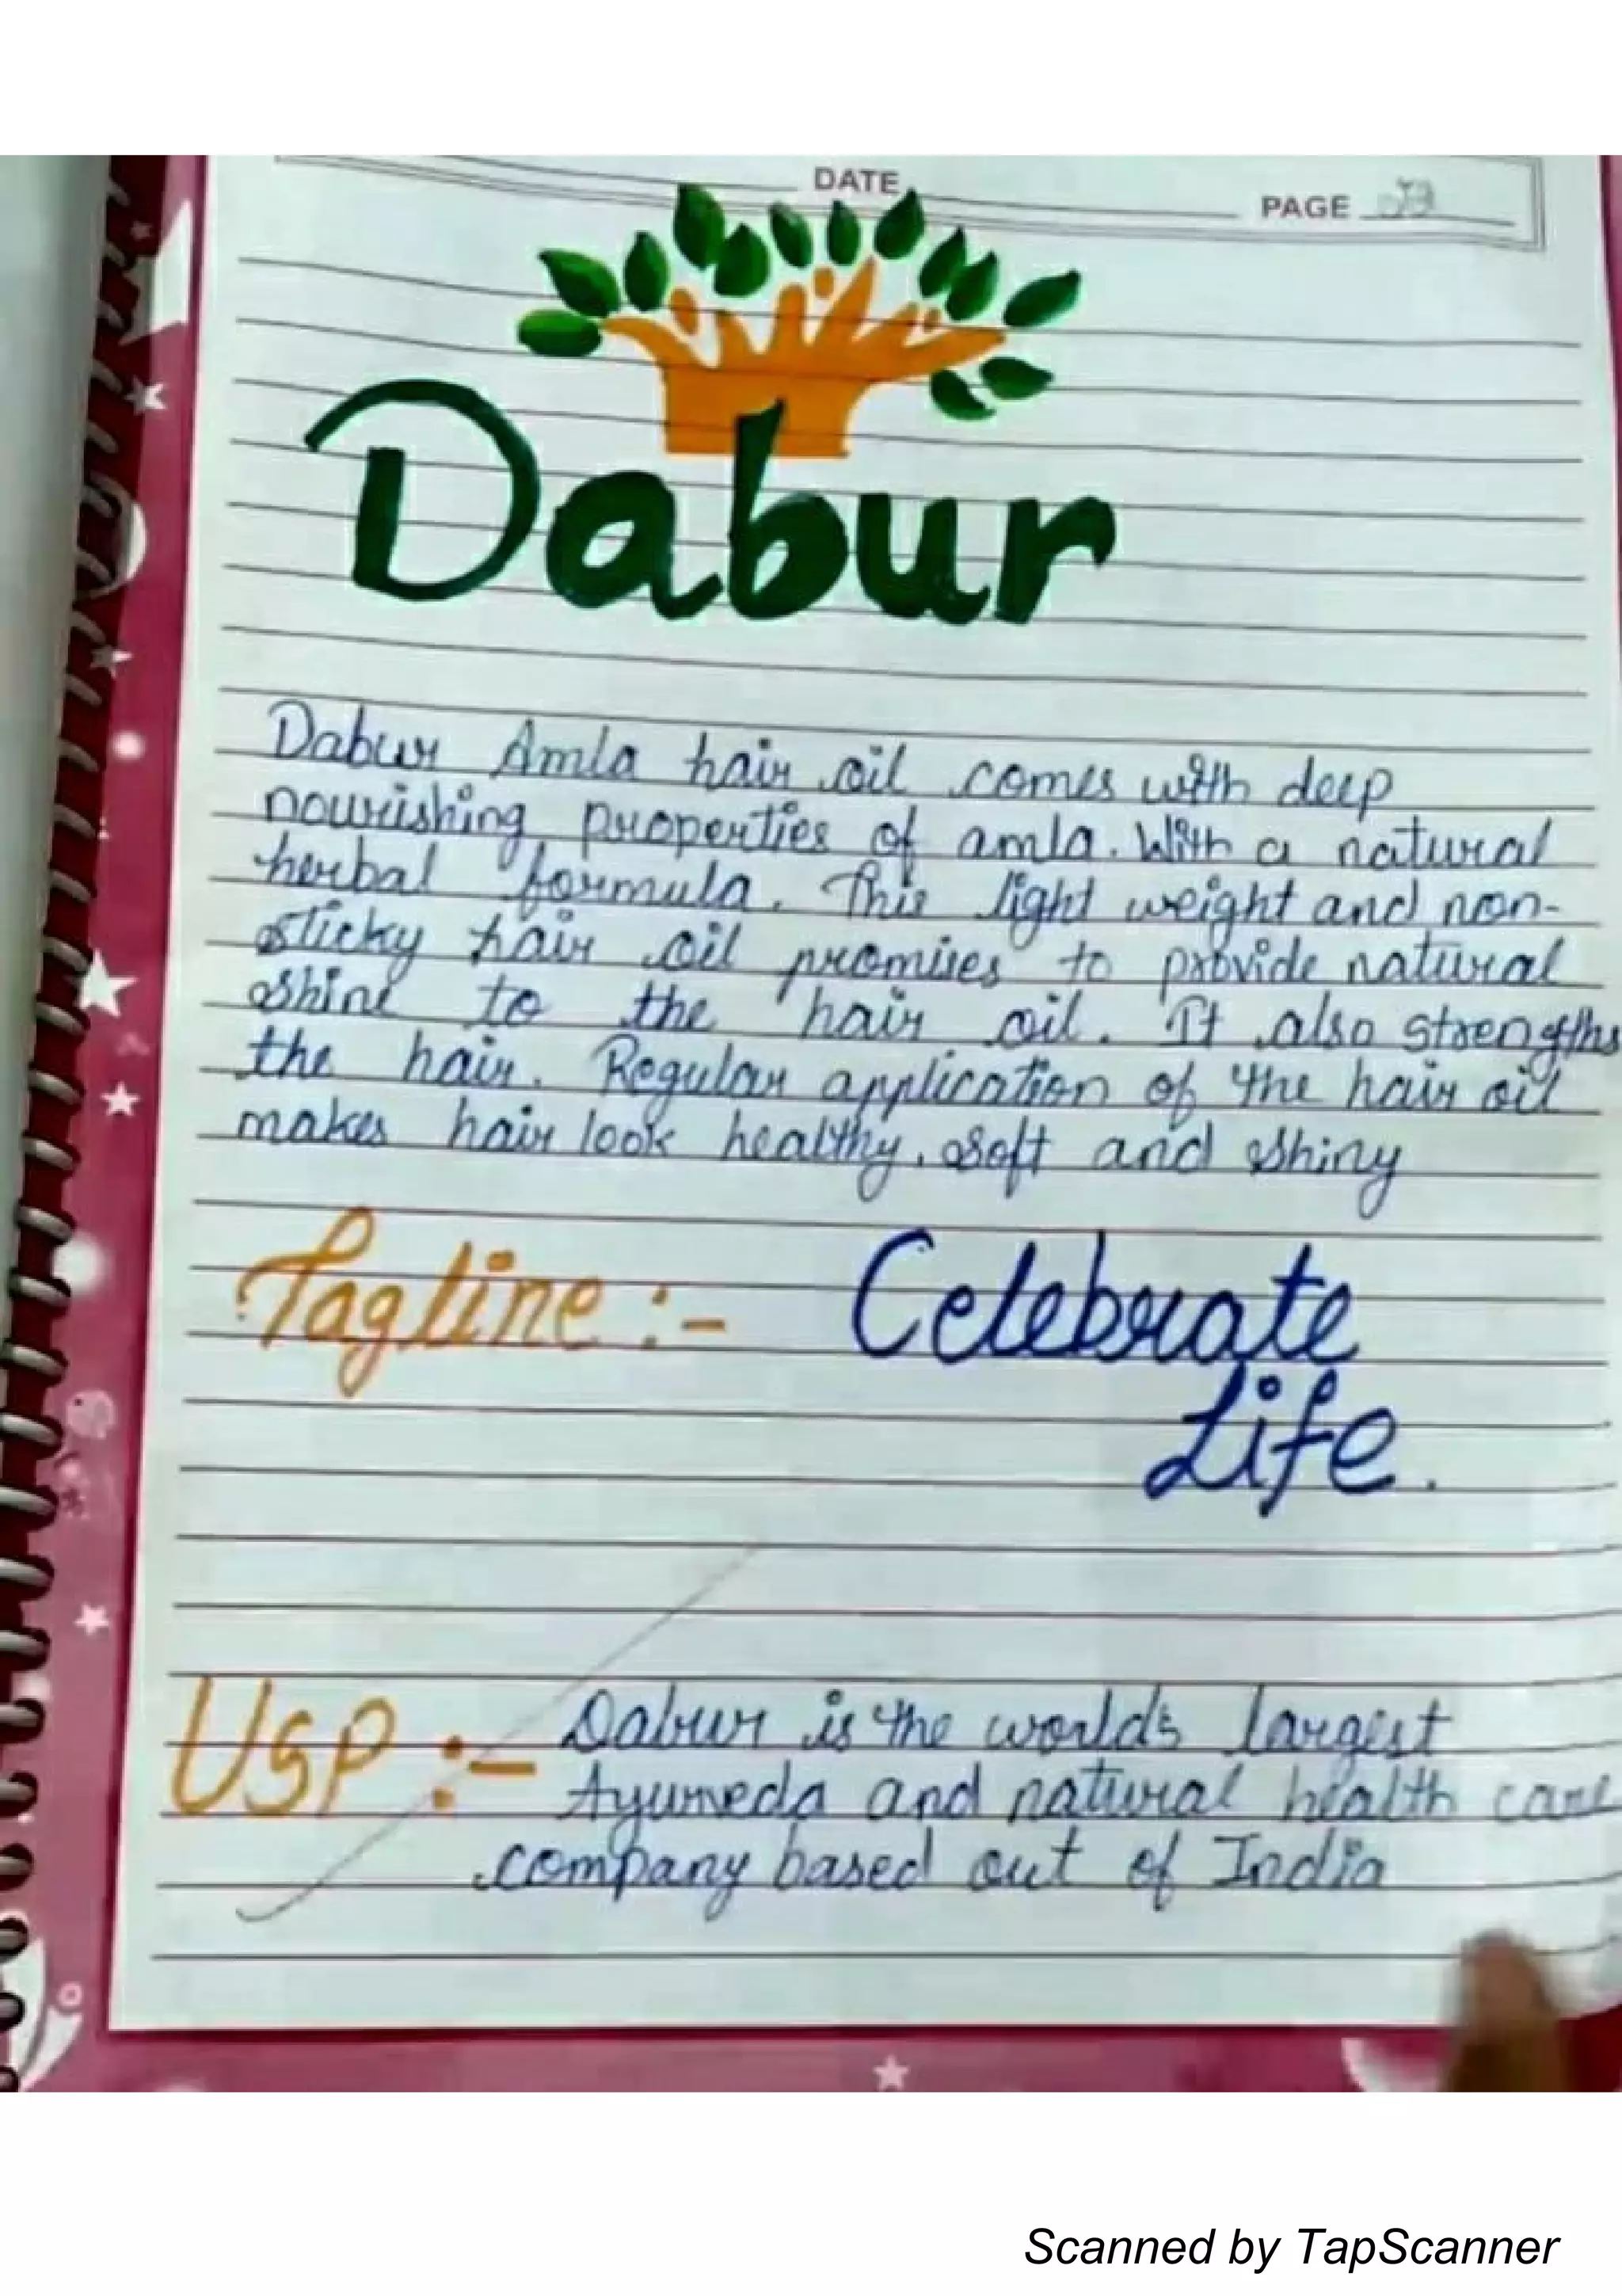 DATE
PAGE
Dabur
Dabur Amla hair oil comes with deep
nourishing properties of amla. With a natural
herbal formula. This light weight and non-
sticky hair oil promises to provide natural
shine to the hair oil. It also strengths
the hair. Regular application of the hair oil
makes hair look healthy, soft and shiny
Tagline :- Celebrate
Life.
USP :- Dabur is the world's largest
Ayurveda and natural health care
company based out of India
Scanned by TapScanner